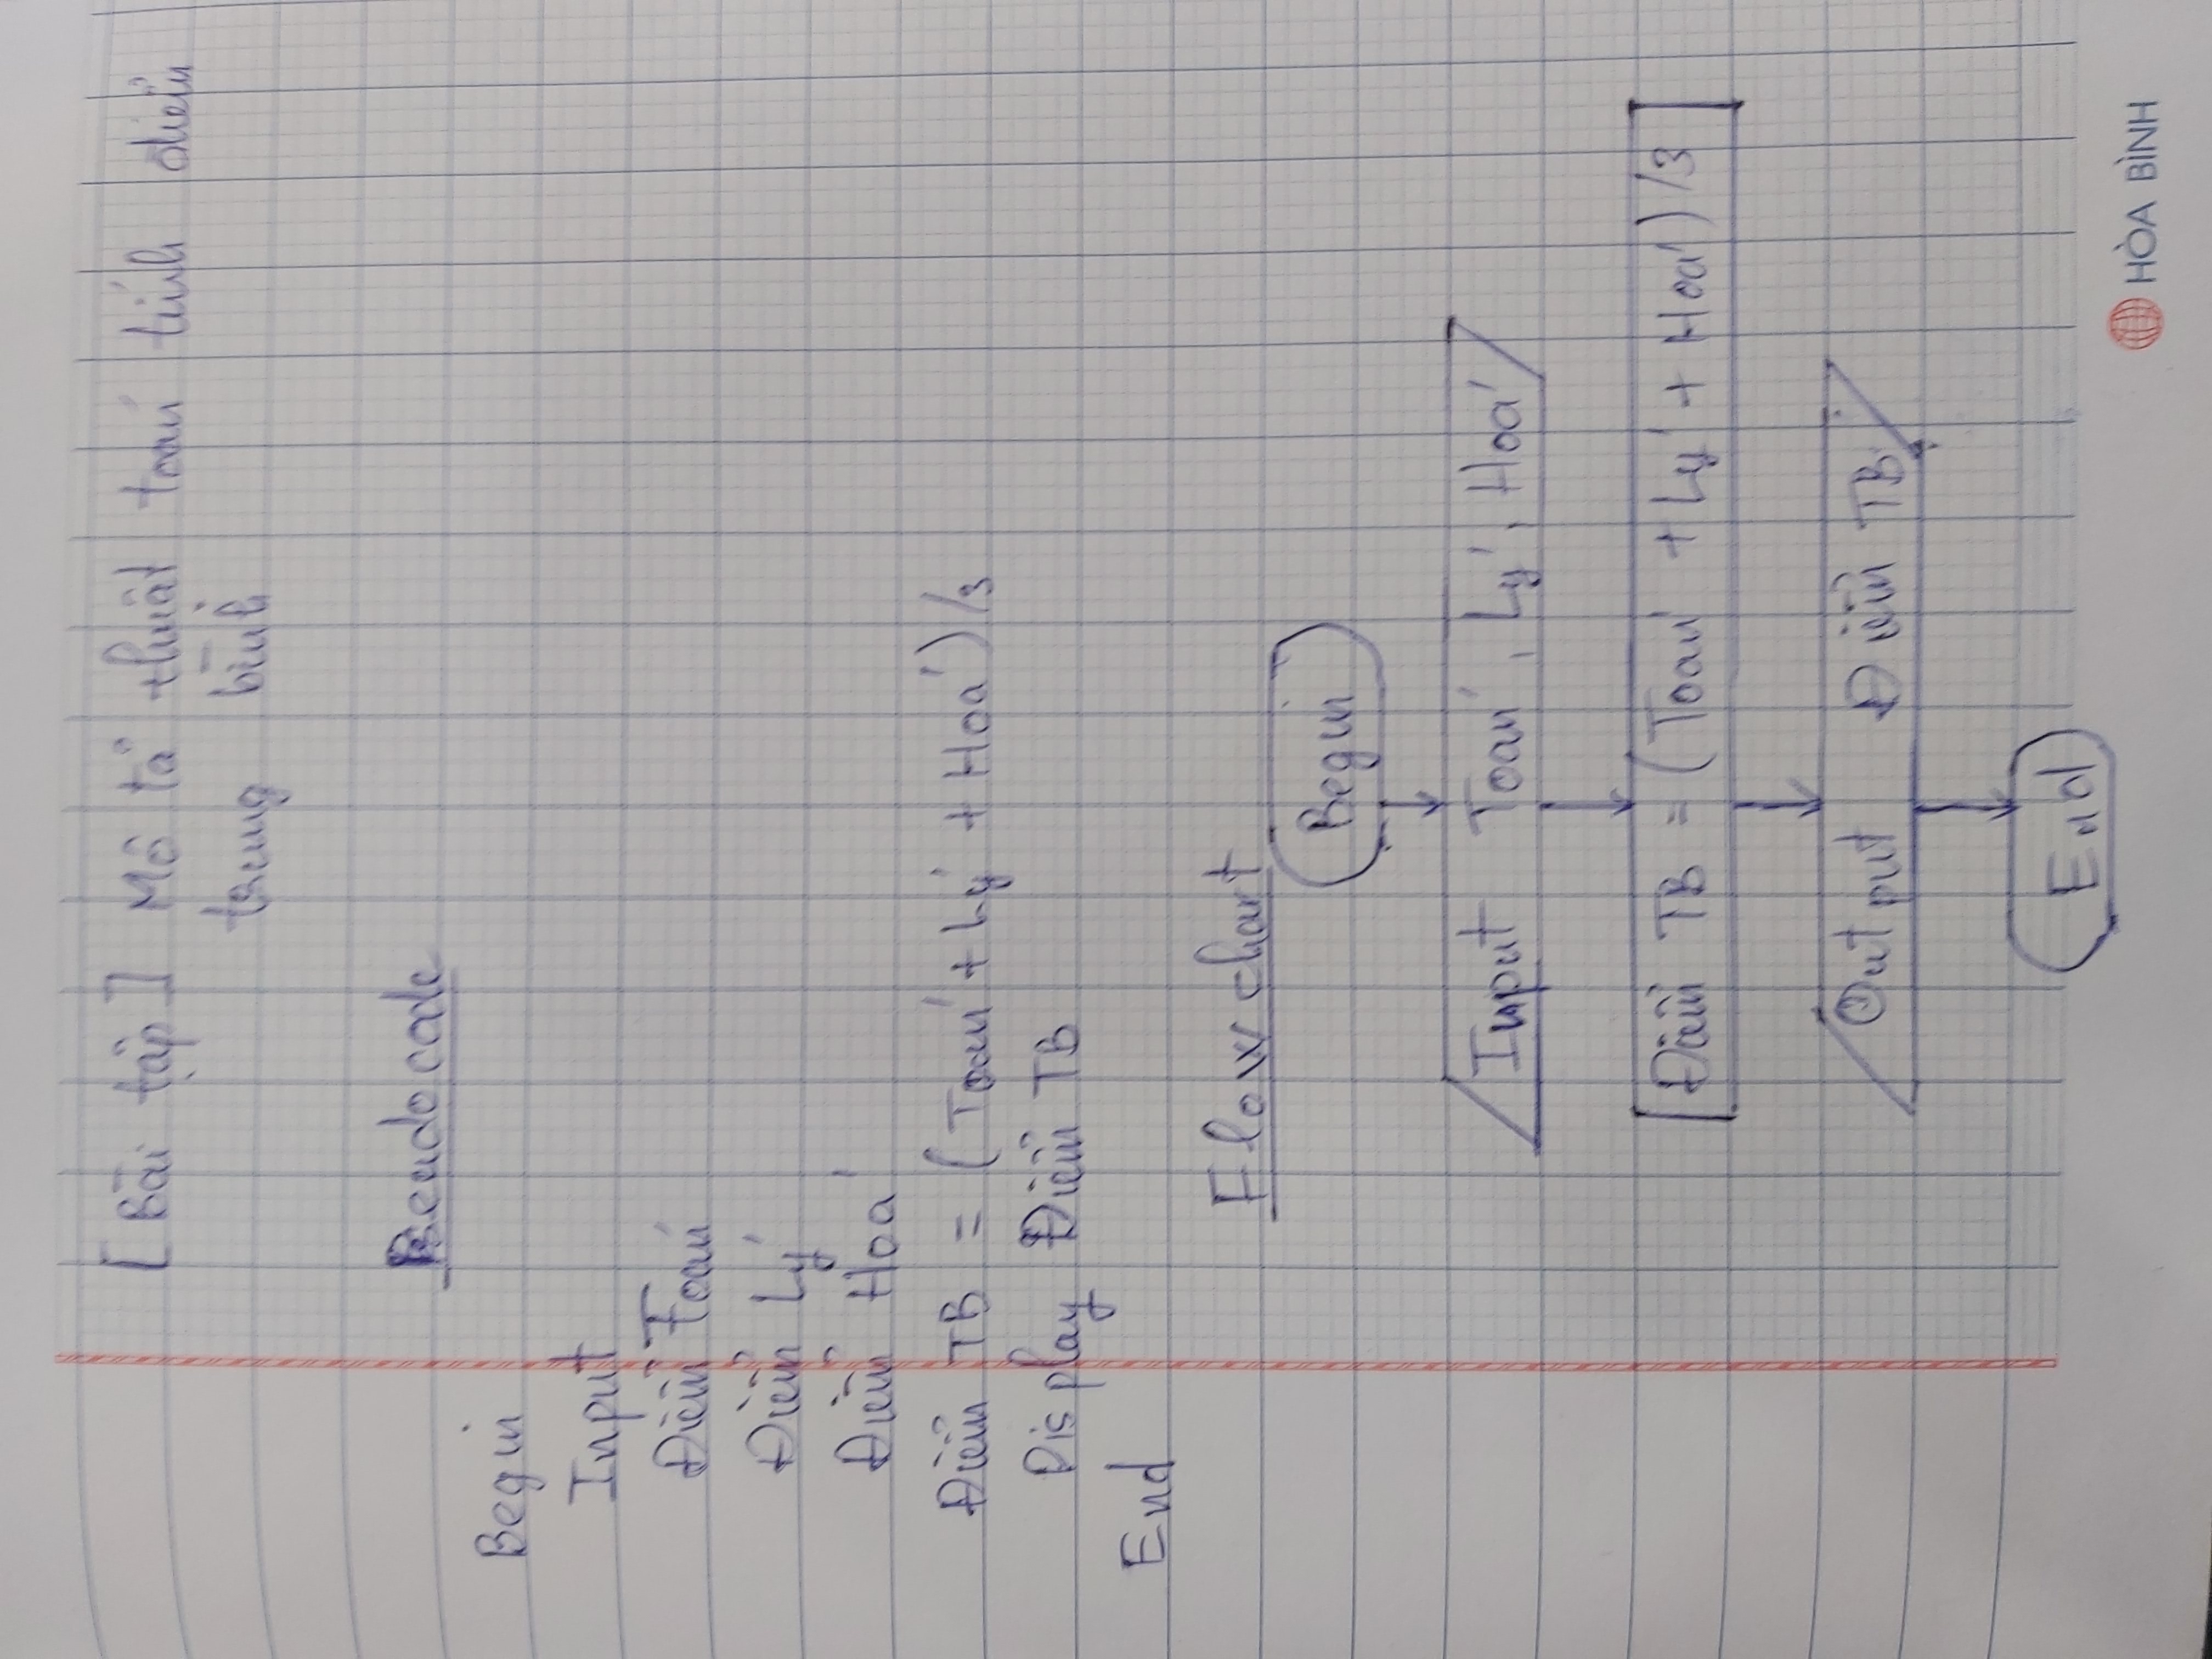 [Bài tập] Mô tả thuật toán tính điểm
trung bình
Pseudo code
Begin
Input
Điểm Toán
Điểm Lý
Điểm Hoá
Điểm TB = (Toán + Lý + Hoá)/3
Display Điểm TB
End
Flow chart
Begin
Input Toán, Lý, Hoá
Điểm TB = (Toán + Lý + Hoá)/3
Output Điểm TB
End
HÒA BÌNH